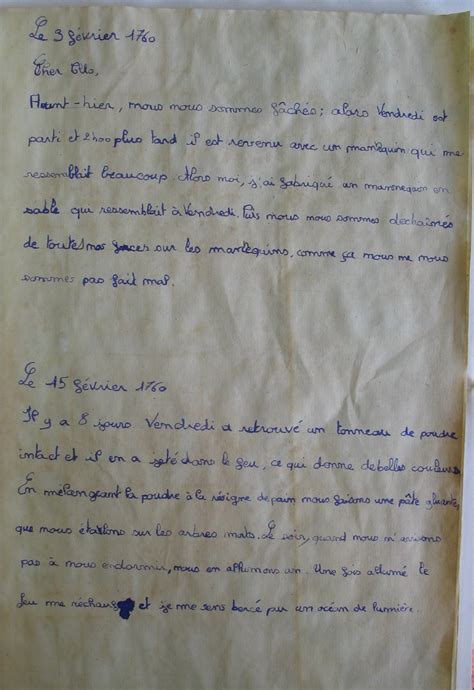 Le 3 février 1760
Cher
Avant-hier, nous nous sommes fâchés; alors Vendredi est
parti et 2h00 plus tard il est revenu avec un mannequin qui me
ressemblait beaucoup. Alors moi, j'ai fabriqué un mannequin en
sable qui ressemblait à Vendredi. Puis nous nous sommes déchaînés
de toutes nos forces sur les mannequins, comme ça nous ne nous
sommes pas fait mal.
Le 15 février 1760
Il y a 8 jours Vendredi a retrouvé un tonneau de poudre
intact et il en a jeté dans le feu, ce qui donne de belles couleurs
En mélangeant la poudre à la résigne de pain nous faisons une pâte gluante,
que nous étallons sur les arbres morts. Le soir, quand nous n'arrivons
pas à nous endormir, nous en allumons un. Une fois allumé le
feu me réchauffe et je me sens bercé par un océan de lumière.